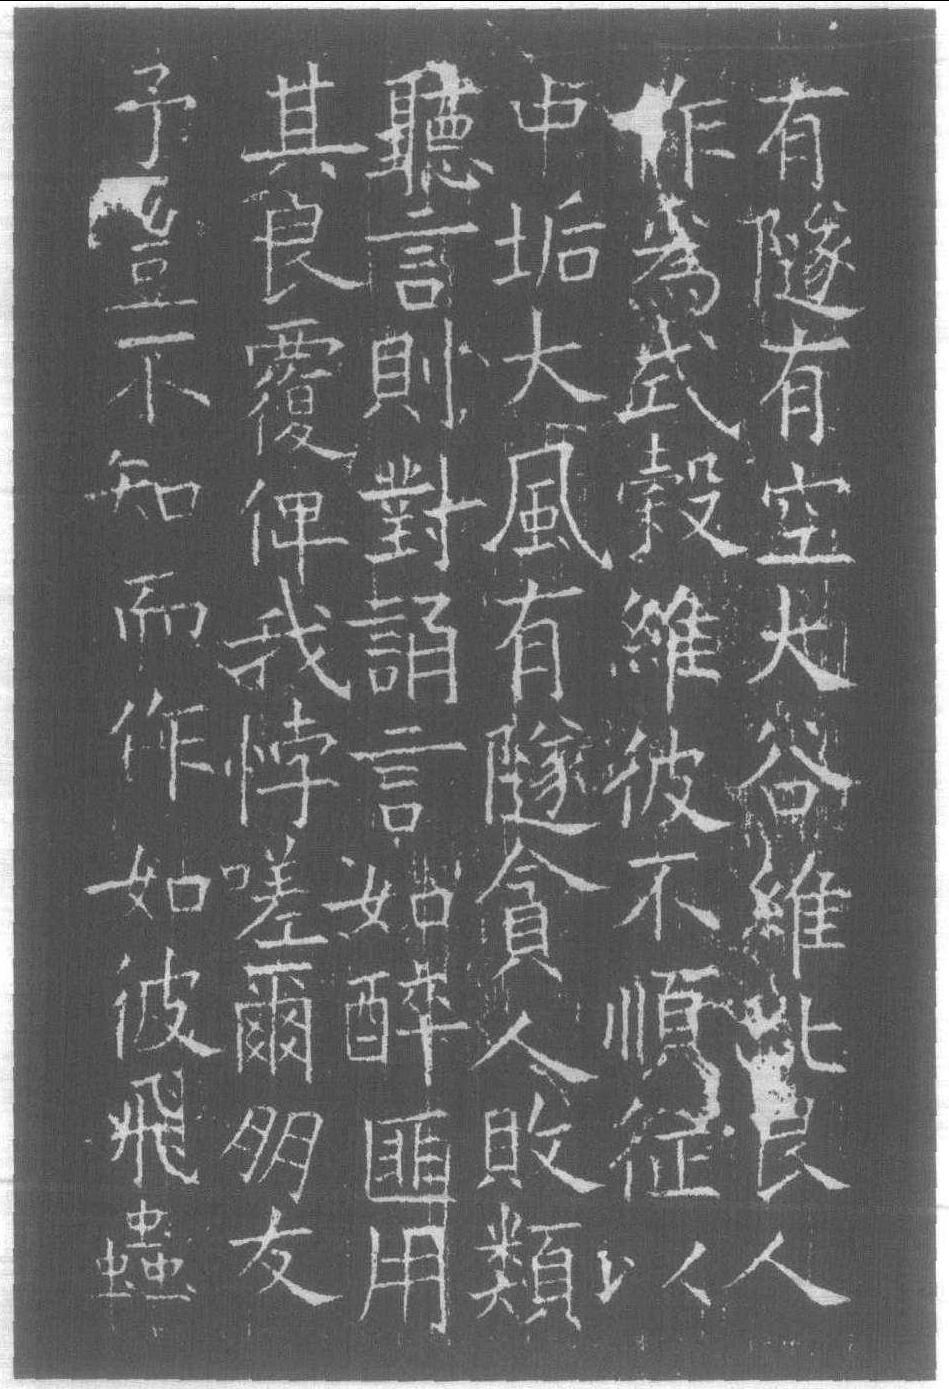 有隧有空大谷維此良人
作為式穀維彼不順征以
中垢大風有隧貪人敗類
聽言則對誦言如醉匪用
其良覆俾我悖嗟爾朋友
予豈不知而作如彼飛蟲